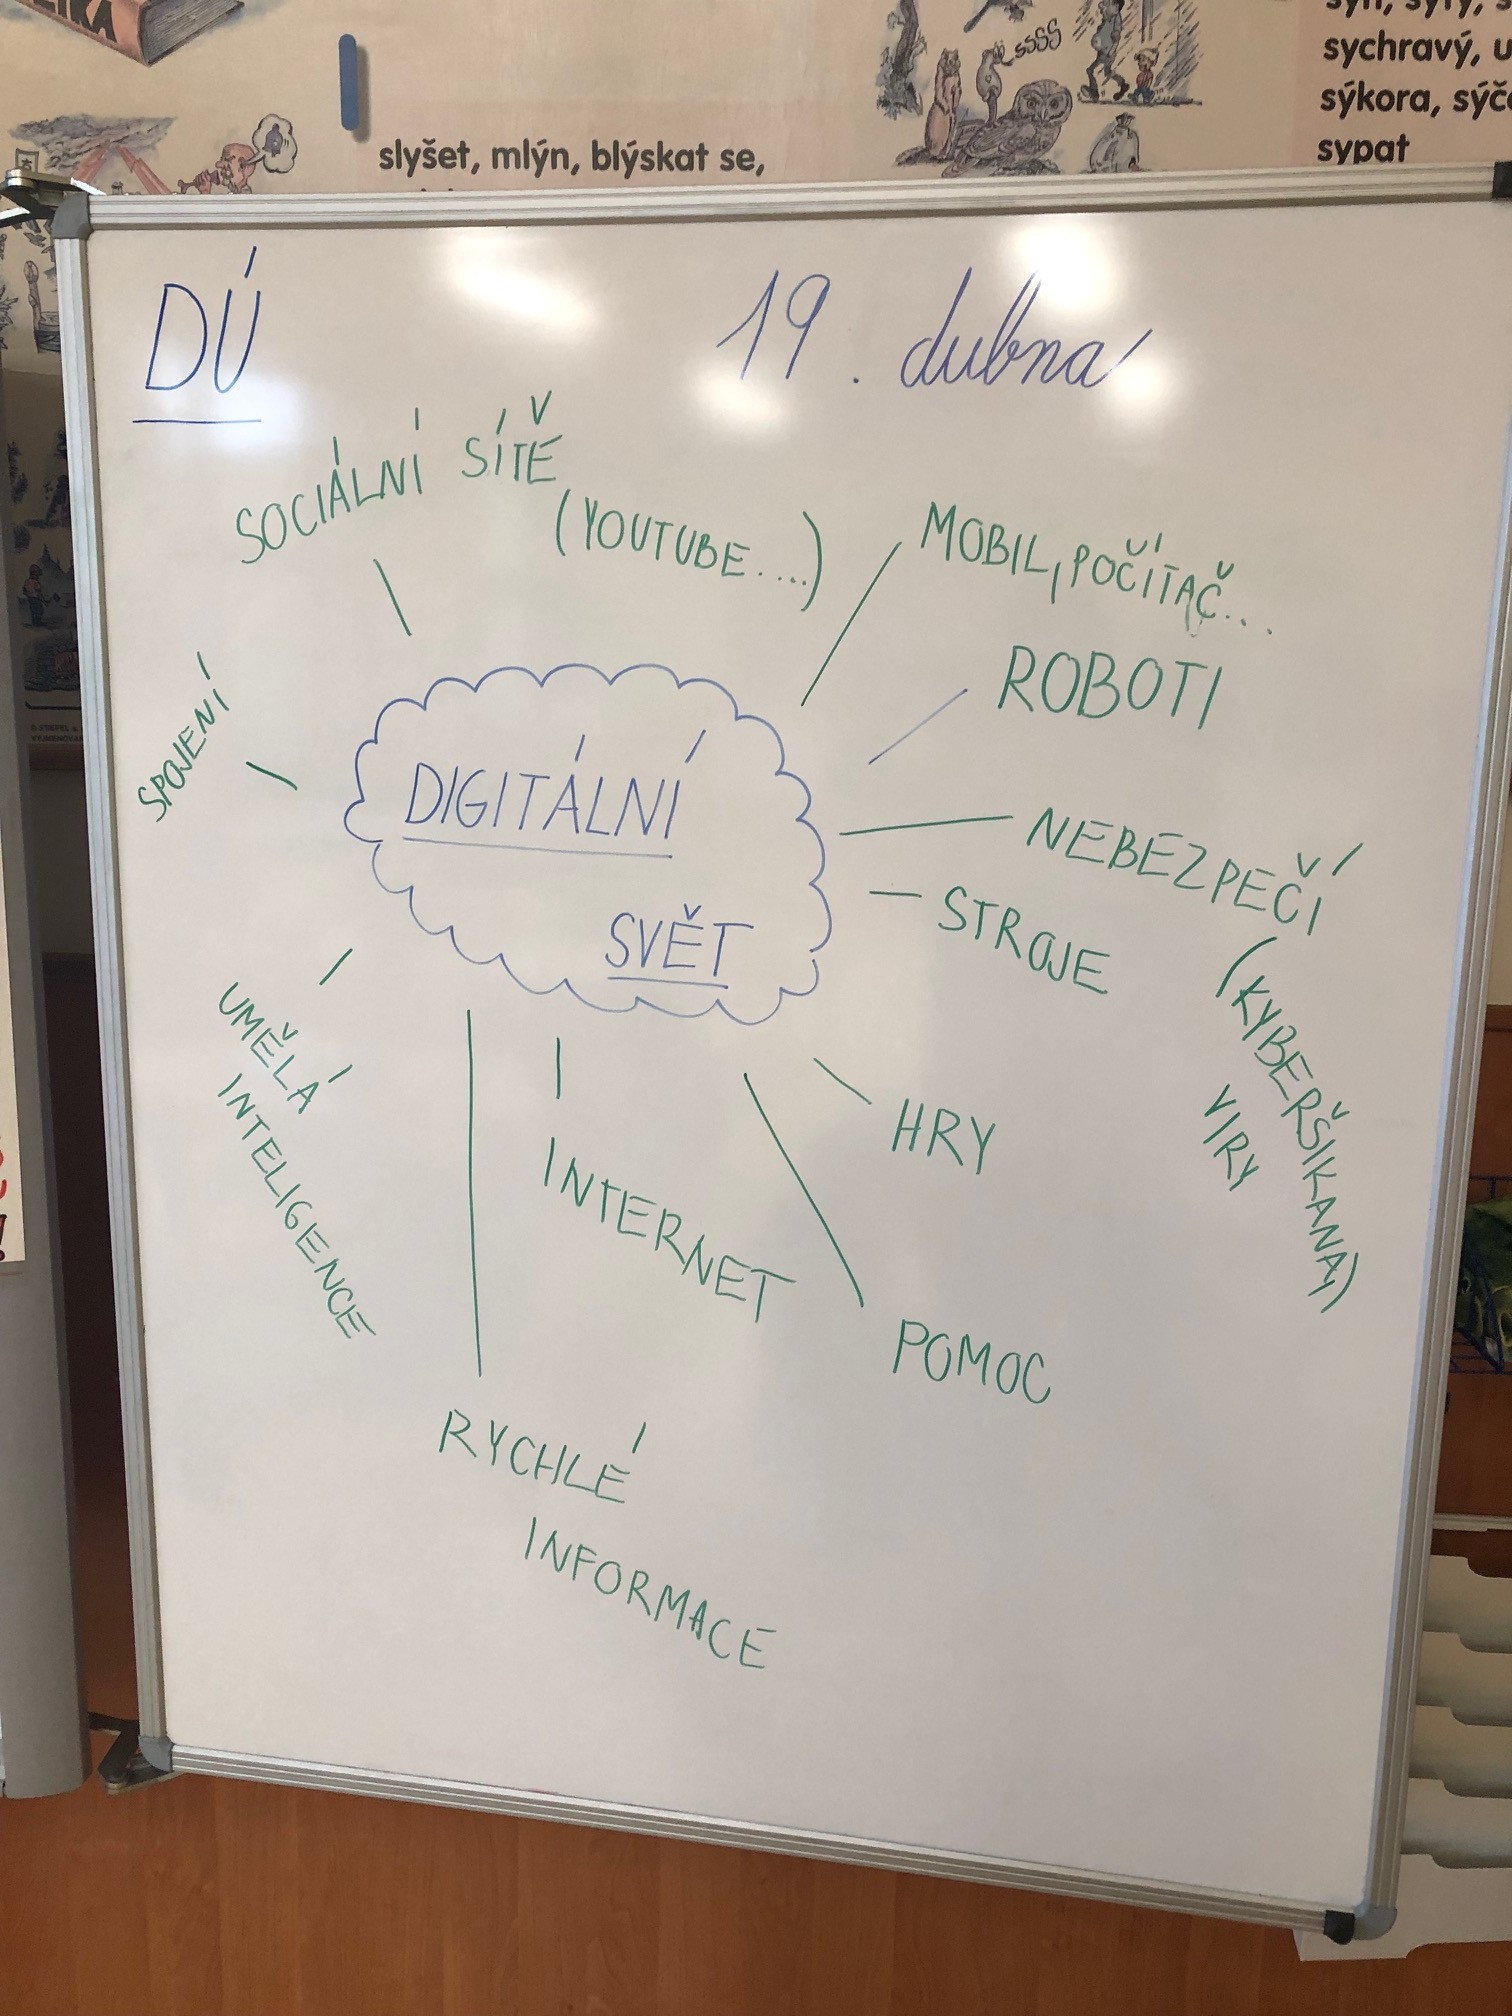 slyšet, mlýn, blýskat se,
SSSS
sychravý, u
sýkora, sýč
sypat
DÚ
19. dubna
SOCIÁLNÍ SÍTĚ
(YOUTUBE....)
MOBIL, POČÍTAČ...
ROBOTI
SPOJENÍ
DIGITÁLNÍ
SVĚT
NEBEZPEČÍ
(KYBERŠIKANA)
VIRY
STROJE
UMĚLÁ
INTELIGENCE
INTERNET
HRY
POMOC
RYCHLÉ
INFORMACE